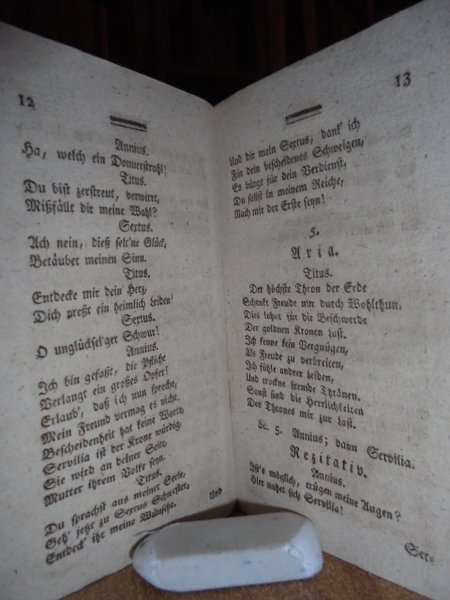 12
Annius.
Ha, welch ein Donnerstrahl!
Titus.
Du bist zerstreut, verwirrt,
Mißfällt dir meine Wahl?
Sextus.
Ach nein, dieß selt'ne Glück,
Betäubet meinen Sinn.
Titus.
Entdecke mir dein Herz,
Dich preßt ein heimlich Leiden!
Sextus.
O unglücksel'ger Schwur!
Annius.
Ich bin gefaßt, die Pflicht
Verlangt ein großes Opfer!
Erlaub', daß ich nun spreche,
Mein Freund vermag es nicht,
Bescheidenheit hat keine Worte,
Servilia ist der Krone würdig,
Sie wird an deiner Seite,
Mutter ihrem Volke seyn.
Titus.
Du sprachst aus meiner Seele,
Geh' jetzt zu Sextus Schwester,
Entdeck' ihr meine Wünsche.
Und
13
Und dir mein Sextus, dank' ich
Für dein bescheidenes Schweigen,
Es bürgt für dein Verdienst,
Du sollst in meinem Reiche,
Nach mir der Erste seyn!
5.
Aria.
Titus.
Der höchste Thron der Erde
Schenkt Freude nur durch Wohlthun.
Dies lohnt für die Beschwerde
Der goldnen Kronen Last.
Ich kenne kein Vergnügen,
Als Freude zu verbreiten,
Ich fühle andrer Leiden,
Und trockne fremde Thränen.
Sonst sind die Herrlichkeiten
Des Thrones mir zur Last.
Sc. 5. Annius; dann Servilia.
Rezitativ.
Annius.
Ist's möglich, trügen meine Augen?
Hier nahet sich Servilia!
Ser-